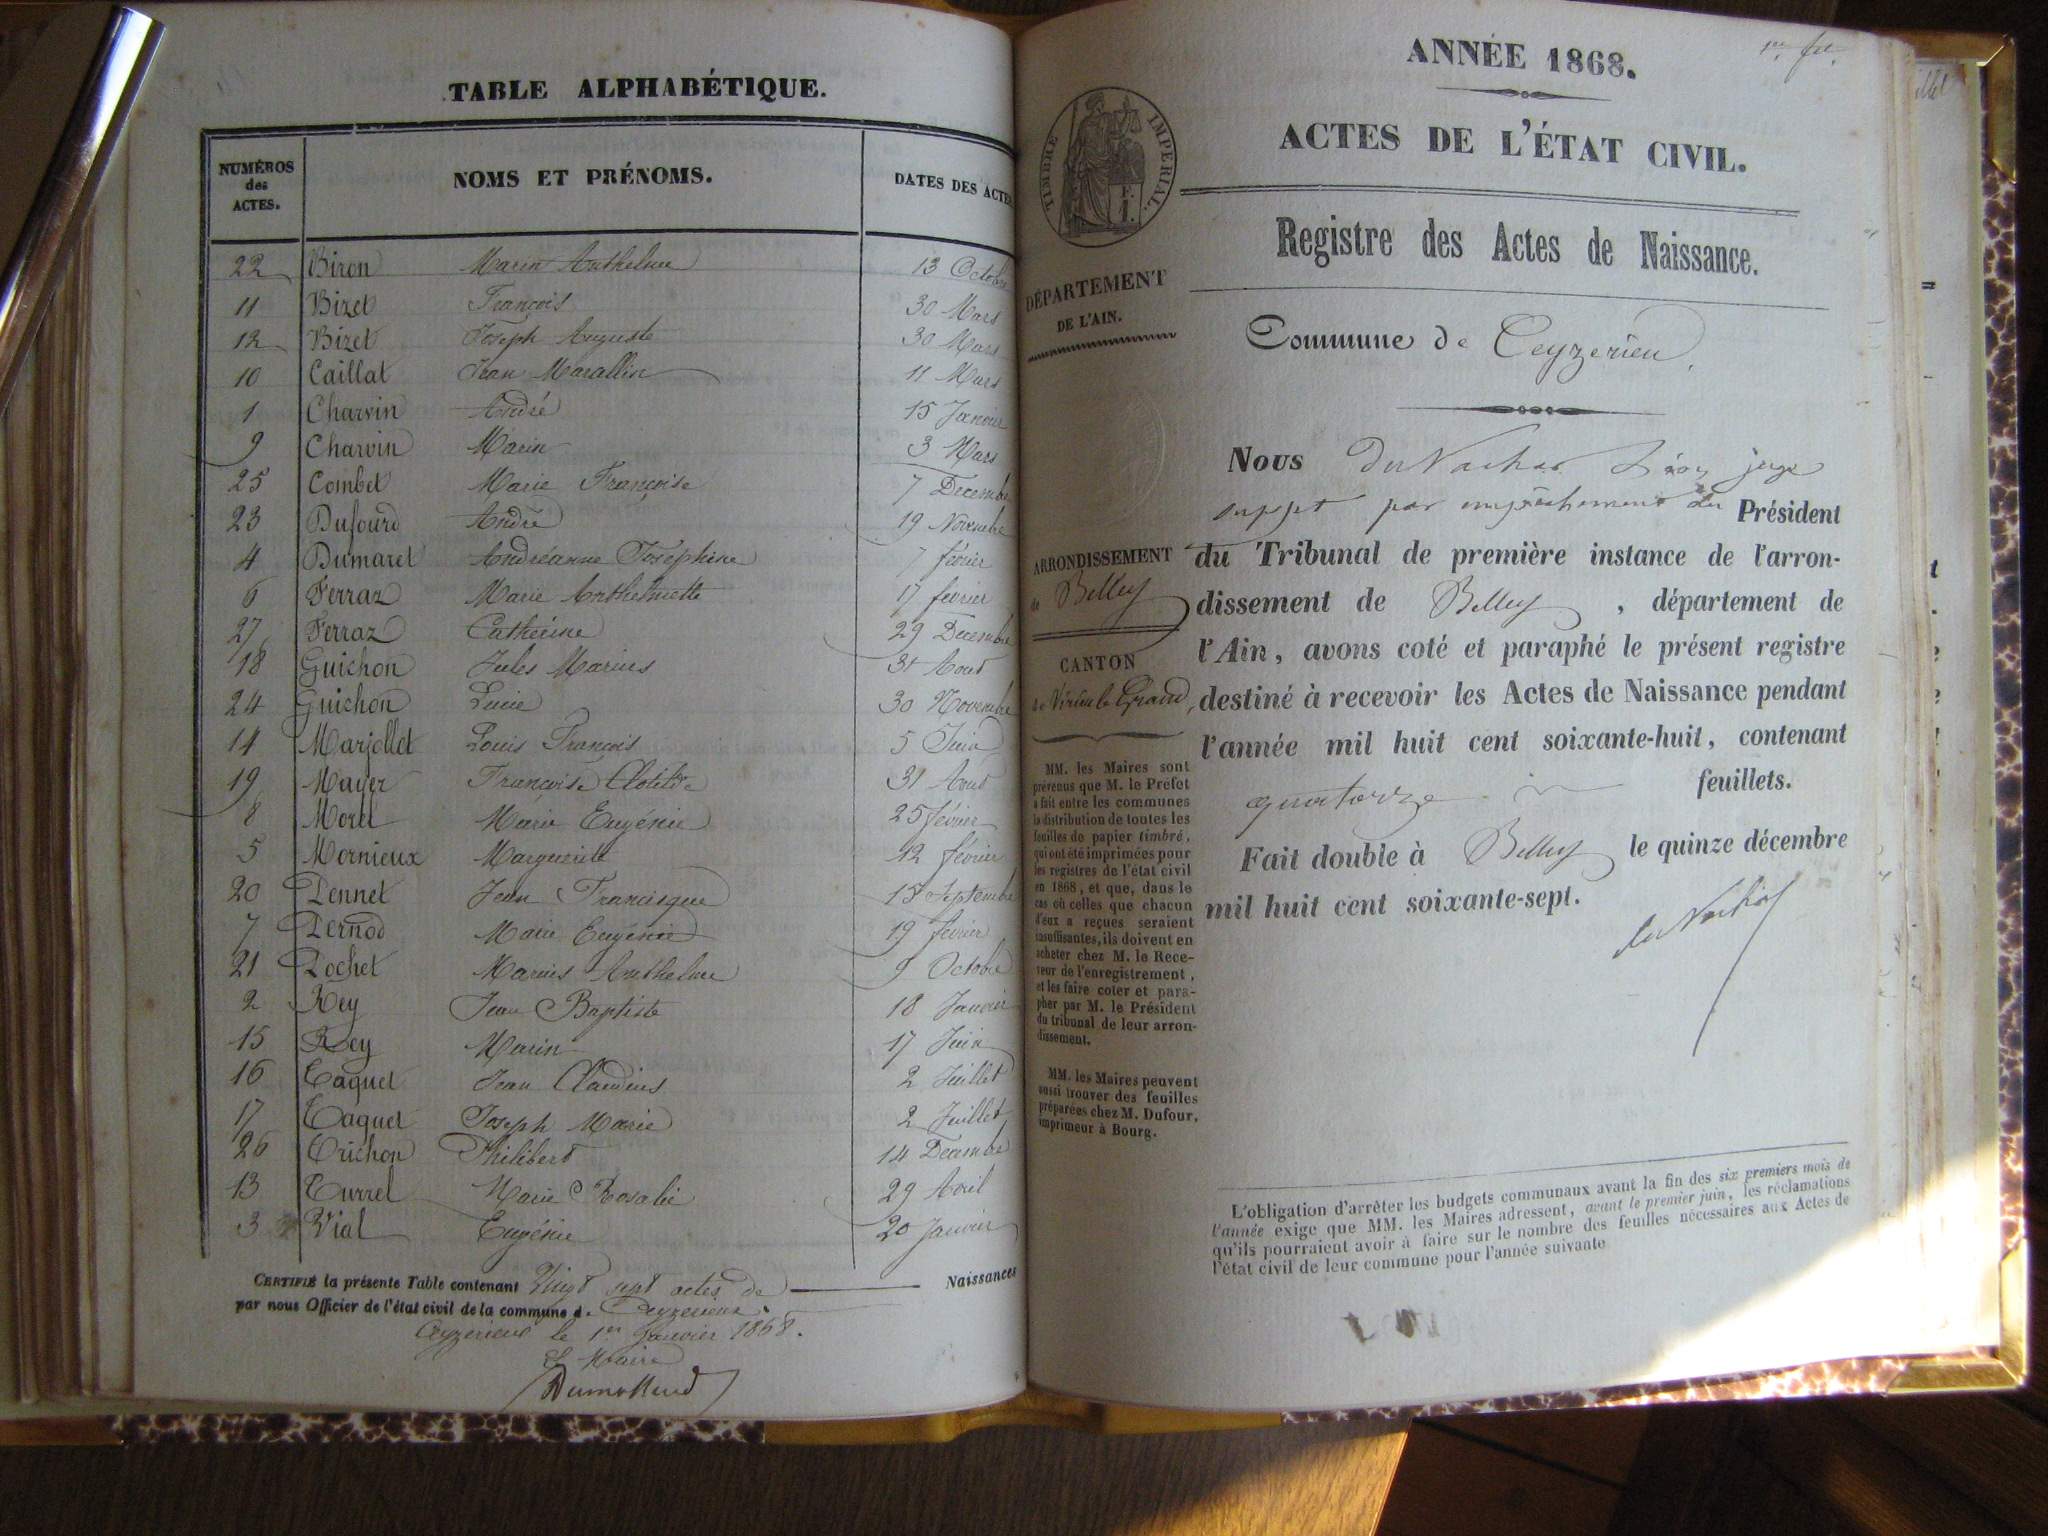 TABLE ALPHABÉTIQUE.
NUMÉROS des ACTES. NOMS ET PRÉNOMS. DATES DES ACTES
22 Biron Marin Anthelme 13 Octobre
11 Bizet François 30 Mars
12 Bizet Joseph Auguste 30 Mars
10 Caillat Jean Marallin 11 Mars
1 Charvin André 15 Janvier
9 Charvin Marin 3 Mars
25 Combet Marie Françoise 7 Décembre
23 Dufourd André 19 Novembre
4 Dumaret Andréanne Joséphine 7 février
6 Ferraz Marie Anthelmette 17 février
27 Ferraz Catherine 29 Décembre
18 Guichon Jules Marius 31 Aout
24 Guichon Lucie 30 Novembre
14 Marjollet Louis François 5 Juin
19 Mayer Françoise Clotilde 31 Aout
8 Morel Marie Eugénie 25 février
5 Mornieux Marguerite 12 février
20 Pennet Jean Francisque 15 Septembre
7 Pernod Marie Eugénie 19 février
21 Pochet Marius Anthelme 9 Octobre
2 Rey Jean Baptiste 18 Janvier
15 Rey Marin 17 Juin
16 Taquet Jean Claudius 2 Juillet
17 Taquet Joseph Marie 2 Juillet
26 Trichon Philibert 14 Décembre
13 Turrel Marie Rosalie 29 Avril
3 Vial Eugénie 20 Janvier
CERTIFIÉ la présente Table contenant Vingt sept actes de Naissances
par nous Officier de l'état civil de la commune de Ceyzerieu.
Ceyzerieu le 1er Janvier 1868.
Le Maire
Dumollard
1er fet.
ANNÉE 1868.
ACTES DE L'ÉTAT CIVIL.
TIMBRE IMPERIAL.
F.
1.
Registre des Actes de Naissance.
DÉPARTEMENT
DE L'AIN.
Commune de Ceyzerieu.
Nous juge
suppt par empêchement du Président
du Tribunal de première instance de l'arron-
dissement de Belley, département de
l'Ain, avons coté et paraphé le présent registre
destiné à recevoir les Actes de Naissance pendant
l'année mil huit cent soixante-huit, contenant
quatorze feuillets.
Fait double à Belley le quinze décembre
mil huit cent soixante-sept.
ARRONDISSEMENT
de Belley
CANTON
de Virieu le Grand
MM. les Maires sont
prévenus que M. le Préfet
a fait entre les communes
la distribution de toutes les
feuilles de papier timbré,
qui ont été imprimées pour
les registres de l'état civil
en 1868, et que, dans le
cas où celles que chacun
d'eux a reçues seraient
insuffisantes, ils doivent en
acheter chez M. le Rece-
veur de l'enregistrement,
et les faire coter et para-
pher par M. le Président
du tribunal de leur arron-
dissement.
MM. les Maires peuvent
aussi trouver des feuilles
préparées chez M. Dufour,
imprimeur à Bourg.
L'obligation d'arrêter les budgets communaux avant la fin des six premiers mois de
l'année exige que MM. les Maires adressent, avant le premier juin, les réclamations
qu'ils pourraient avoir à faire sur le nombre des feuilles nécessaires aux Actes de
l'état civil de leur commune pour l'année suivante